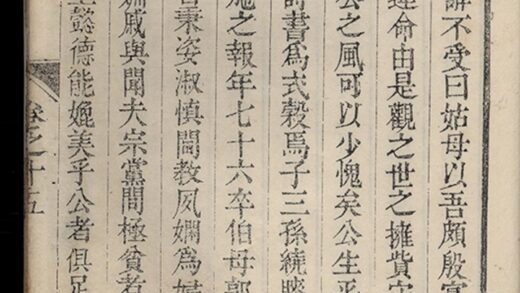 辭不受曰姑母以吾頗殷
運命由是觀之世之擁貲
公之風可以少愧矣公生
詩書爲式穀焉子三孫繞
之報年七十六卒伯母郭
秉姿淑慎閫教夙嫻爲
戚與聞夫宗黨間極貧者
懿德能媲美乎公者俱足
卷之十五